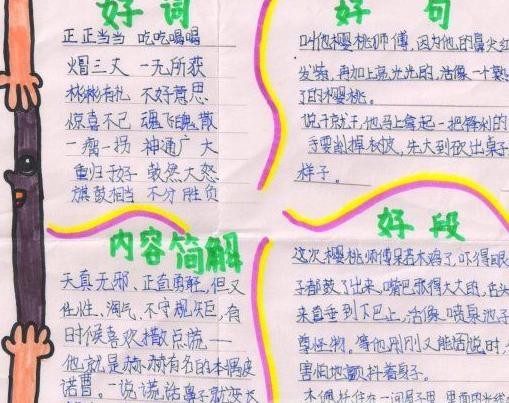 好词
正正当当 吃吃喝喝
火冒三丈 一无所获
彬彬有礼 不好意思
惊喜不已 魂飞魄散
一瘸一拐 神通广大
重归于好 勃然大怒
旗鼓相当 不分胜负
好句
叫他樱桃师傅,因为他的鼻尖红
发紫,再加上亮光光的,活像一个熟
了的樱桃。
说干就干,他马上拿起一把锋利的
要削掉树皮,先大到砍出桌子
样子。
内容简解
天真无邪、正直勇敢,但又
任性、淘气、不守规矩,有
时候喜欢撒点谎——
他就是赫赫有名的木偶皮
诺曹。一说谎话鼻子就变大
好段
这次樱桃师傅呆若木鸡了,吓得眼
子都鼓了出来,嘴巴张得大大的,舌头
来直垂到下巴上,活像喷泉池子
等他刚刚又能话说时,
害怕地颤抖着身子。